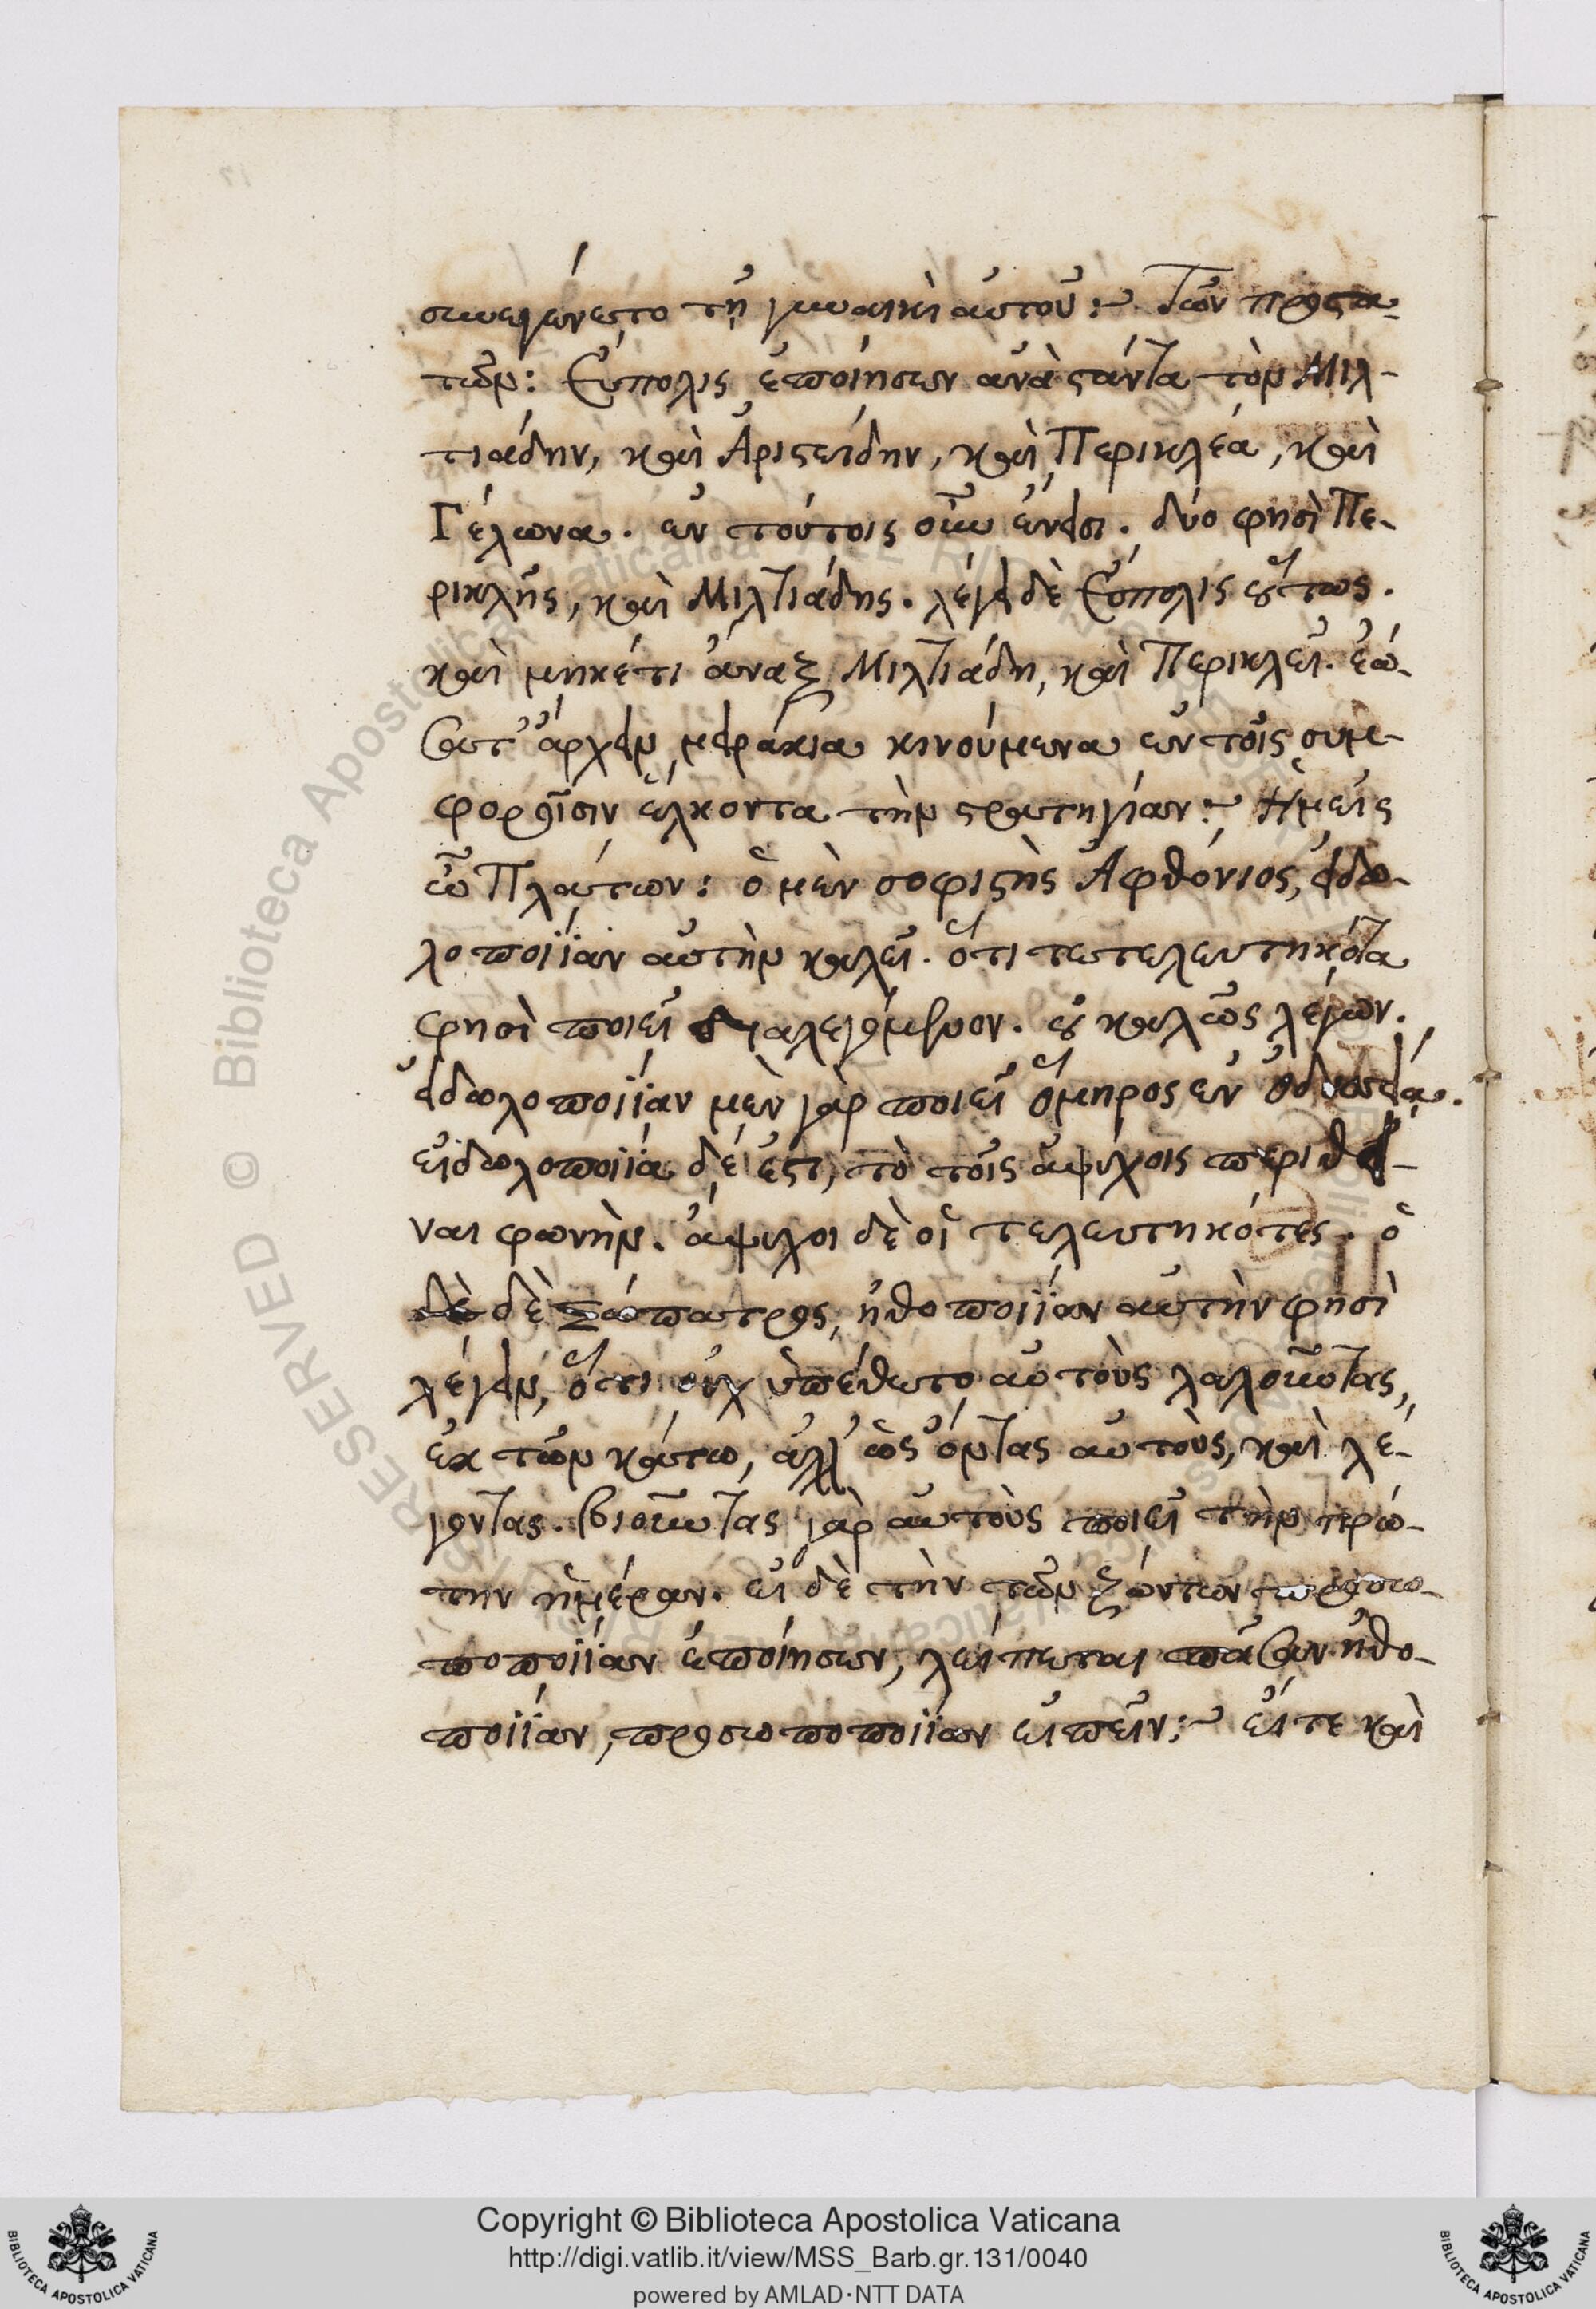 συνεγένετο τῇ γυναικὶ αὐτοῦ :~ Τῶν προστα-
τῶν : Εὔπολις ἐποίησεν ἀναστάντα τὸν Μιλ-
τιάδην, καὶ Ἀριστείδην, καὶ Περικλέα, καὶ
Γέλωνα. ἐν τούτοις οὖν ἔνεισι. δύο φησὶ Πε-
ρικλῆς, καὶ Μιλτιάδης. λέγει δὲ Εὔπολις οὕτως.
καὶ μηκέτι ἄναξ Μιλτιάδη, καὶ Περίκλεις. ἐά-
σατ' ἄρχειν μειράκια κινούμενα ἐν τοῖς συμ-
φοραῖσιν ἕλκοντα τὴν στρατηγίαν :~ Ἡμεῖς
ὦ Πλάτων : ὁ μὲν σοφιστὴς Ἀφθόνιος, εἰδω-
λοποιΐαν αὐτὴν καλεῖ. ὅτι τετελευτηκότα
φησὶ ποιεῖ διαλεγόμενον. οὐ καλῶς λέγων.
εἰδωλοποιΐαν μὲν γὰρ ποιεῖ ὅμηρος ἐν ὀδυσσείᾳ.
εἰδωλοποιΐα δέ ἐστι, τὸ τοῖς ἀψύχοις περιθεῖ-
ναι φωνήν. ἄψυχοι δὲ οἱ τελευτηκότες. ὁ
δὲ δὲ Σώπατρος, ἠθοποιΐαν αὐτὴν φησὶ
λέγειν, ὅτι οὐχ ὑπέθετο αὐτοὺς λαλοῦντας,
ἐκ τῶν κάτω, ἀλλ' ὡς ὄντας αὐτοὺς, καὶ λέ-
γοντας. βιοῦντας γὰρ αὐτοὺς ποιεῖ τὴν πρώ-
την ἡμέραν. εἰ δὲ τὴν τῶν ζώντων προσω-
ποποιΐαν ἐποίησεν, λείπεται πᾶσαν ἠθο-
ποιΐαν, προσωποποιΐαν εἰπεῖν :~ εἴτε καὶ
Copyright © Biblioteca Apostolica Vaticana
http://digi.vatlib.it/view/MSS_Barb.gr.131/0040
powered by AMLAD·NTT DATA